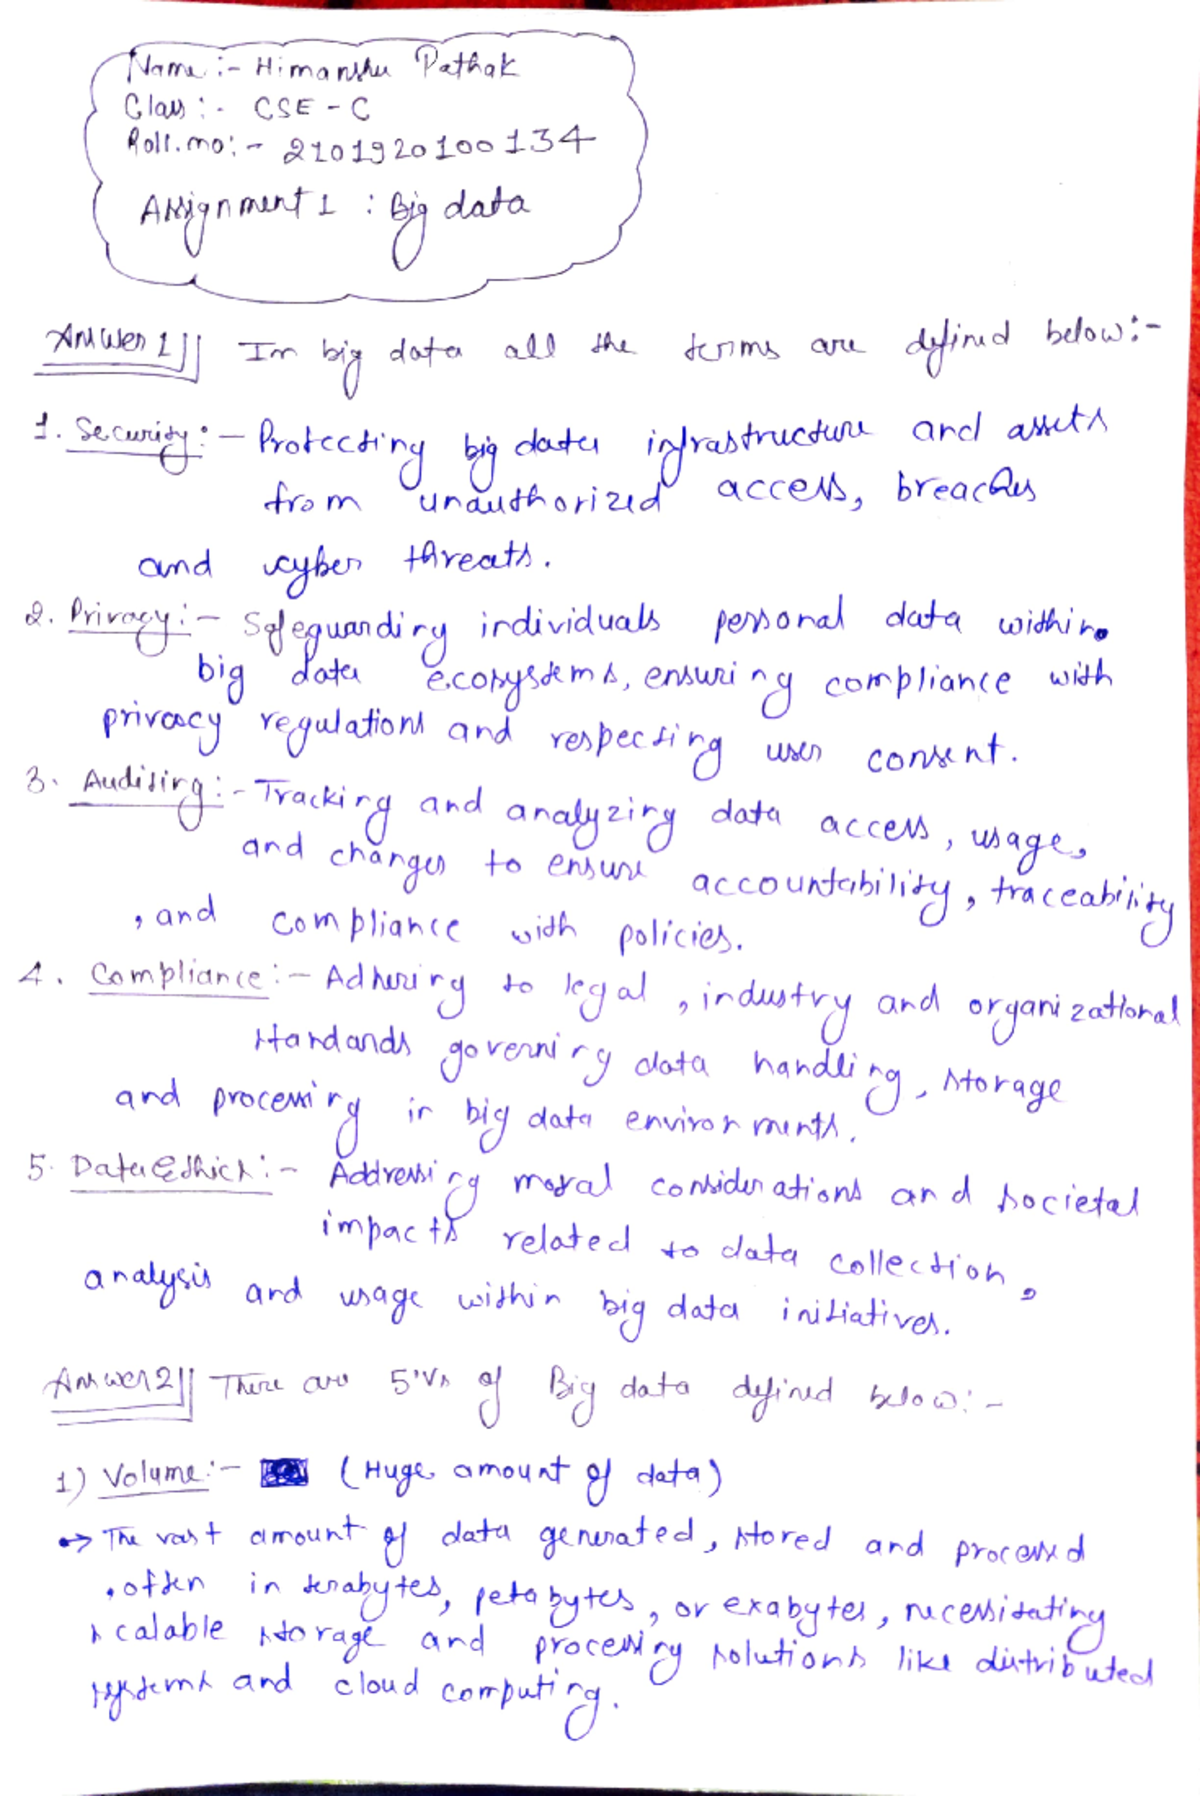 Name :- Himanshu Pathak
Class :- CSE - C
Roll.no :- 2101920100134
Assignment 1 : Big data
Answer 1|| In big data all the terms are defined below:-
1. Security :- Protecting big data infrastructure and assets
from unauthorized access, breaches
and cyber threats.
2. Privacy :- Safeguarding individuals personal data within
big data ecosystems, ensuring compliance with
privacy regulations and respecting user consent.
3. Auditing :- Tracking and analyzing data access, usage,
and changes to ensure accountability, traceability
, and compliance with policies.
4. Compliance :- Adhering to legal, industry and organizational
standards governing data handling, storage
and processing in big data environments.
5. Data Ethics :- Addressing moral considerations and societal
impacts related to data collection,
analysis and usage within big data initiatives.
Answer 2|| There are 5'Vs of Big data defined below:-
1) Volume :- (Huge amount of data)
→ The vast amount of data generated, stored and processed
, often in terabytes, petabytes, or exabytes, necessitating
scalable storage and processing solutions like distributed
systems and cloud computing.